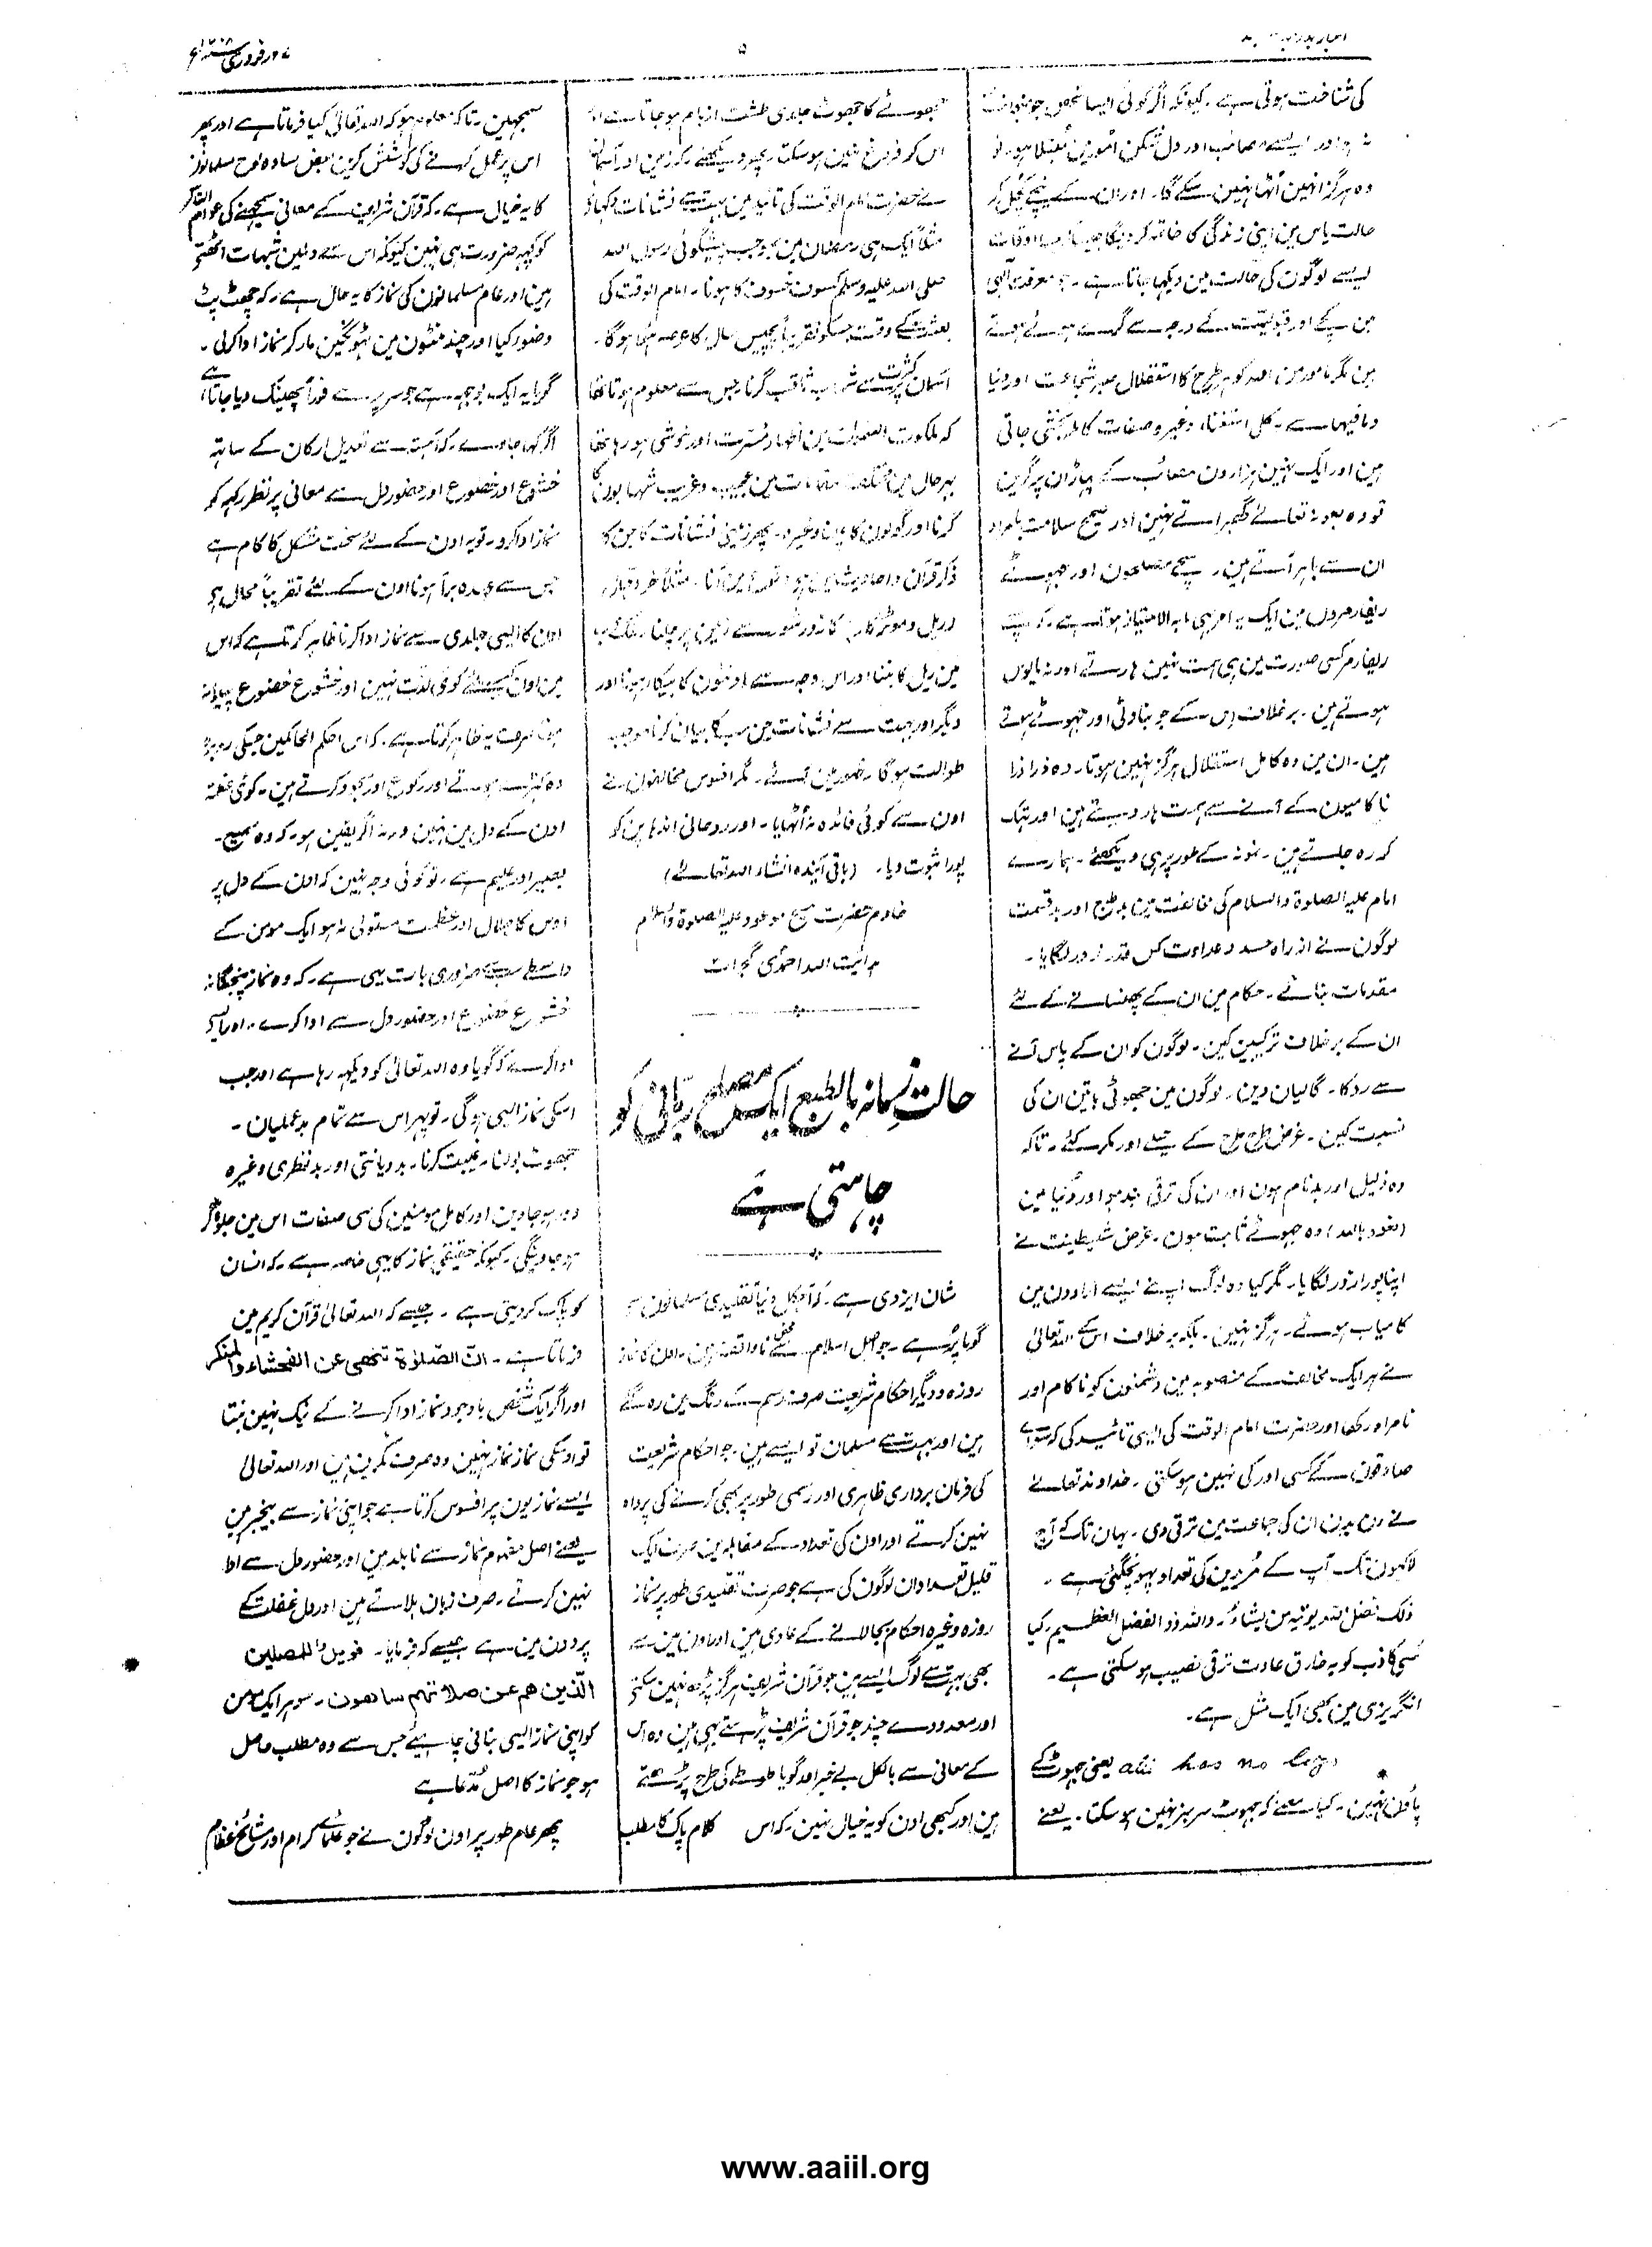 ۵
کی شناخت ہوتی ہے۔ کیونکہ اگر کوئی ایسا شخص جو
اور ایسے مصائب اور دل شکن اُمور مین مُبتلا ہو۔ تو
وہ ہرگز انہین اُٹھا نہین سکے گا۔ اور ان کے نیچے کچل کر
حالت یاس مین اپنی زندگی کا خاتمہ کر دیگا
ایسے لوگون کی حالت مین دیکھا جاتا ہے۔ جو معرفت الٰہی
مین کچے اور قبولیت کے درجہ سے گرے ہوئے ہوتے
ہین مگر مامور من اللہ کو ہر طرح کا استقلال صبر شجاعت اور دنیا
و ما فیہا سے بکلی استغنا، وغیرہ صفات کاملہ بخشی جاتی
ہین اور ایک نہین ہزارون مصائب کے پہاڑ ان پر گرین
تو وہ بعونہ تعالےٰ گھبراتے نہین اور صحیح سلامت بامراد
ان سے باہر آتے ہین۔ سچے مصلحون اور جہوٹے
ریفارمروں مین ایک یہ امر بہی مابہ الامتیاز ہوتا ہے۔ کہ سچے
ریفارمر کسی صورت مین ہی ہمت نہین ہارتے اور نہ مایوس
ہوتے ہین۔ برخلاف اس کے جو بناوٹی اور جہوٹے ہوتے
ہین۔ ان مین وہ کامل استقلال ہرگز نہین ہوتا۔ وہ ذرا ذرا
ناکامیون کے آنے سے ہمت ہار دیتے ہین اور تہک
کر رہ جاتے ہین۔ نمونہ کے طور پر ہی دیکھئے۔ ہمارے
امام علیہ الصلوۃ والسلام کی مخالفت مین بد طرح اور بد قسمت
لوگون نے از راہ حسد و عداوت کس قدر زور لگایا۔
مقدمات بنائے۔ حکام مین ان کے پھنسانے کے لئے
ان کے برخلاف ترکیبین کین۔ لوگون کو ان کے پاس آنے
سے روکا۔ گالیان دین۔ لوگون مین جھوٹی باتین ان کی
نسبت کین۔ غرض طرح طرح کے حیلے اور مکر کئے۔ تاکہ
وہ ذلیل اور بدنام ہون اور ان کی ترقی بند ہو اور دُنیا مین
(نعوذ باللہ) وہ جہوٹے ثابت ہون۔ غرض شیطینت نے
اپنا پورا زور لگایا۔ مگر کیا وہ لوگ اپنے ایسے ارادون مین
کامیاب ہوئے۔ ہرگز نہین۔ بلکہ برخلاف اس کے اللہ تعالیٰ
نے ہر ایک مخالف کے منصوبہ مین دشمنون کو ناکام اور
نامراد رکھا اور حضرت امام الوقت کی ایسی تائید کی کہ سوائے
صادقون کے کسی اور کی نہین ہو سکتی۔ خداوند تعالےٰ
نے دن بدن ان کی جماعت مین ترقی دی۔ یہان تک کہ آج
لاکہون تک آپ کے مُریدین کی تعداد پہونچگئی ہے۔
ذلک فضل اللہ یوتیہ من یشاء۔ واللہ ذو الفضل العظیم۔ کیا
کسی کاذب کو یہ خارق عادت ترقی نصیب ہو سکتی ہے۔
انگریزی مین بھی ایک مثل ہے۔
has no legs یعنی جہوٹ کے
پاؤن نہین۔ کیا معنے کہ جہوٹ سرسبز نہین ہو سکتا۔ یعنے
جھوٹے کا جھوٹ جلدی طشت از بام ہو جاتا ہے اور
اس کو فروغ نہین ہو سکتا۔ پھر دیکھئے۔ کہ زمین اور آسمان
نے حضرت امام الوقت کی تائید مین بہت سے نشانات دکہائے
مثلاً ایک ہی رمضان مین بموجب پیشگوئی رسول اللہ
صلی اللہ علیہ وسلم کسوف خسوف کا ہونا۔ امام الوقت کی
بعثت کے وقت جسکو تقریباً پچیس سال کا عرصہ ہوا ہوگا۔
آسمان پر کثرت سے شہاب ثاقب گرنا جس سے معلوم ہوتا تھا
کہ ملکوت السموات مین اظہار مسرت اور خوشی ہو رہا تھا
بہرحال مین مختلف مقامات مین عجیب و غریب شہابون کا
گرنا اور گولون کا وغیرہ۔ پھر زمینی نشانات کا جن کا
ذکر قرآن و احادیث مین ہے وقوع مین آنا۔ مثلاً خر دجّال
و ریل و موٹر کار کا زور شور سے زمین پر چلنا۔ ملک عرب
مین ریل کا بننا اور اس وجہ سے اونٹون کا بیکار ہونا اور
دیگر اور بہت سے نشانات جن سب کا بیان کرنا موجب
طوالت ہوگا۔ ظہور مین آئے۔ مگر افسوس مخالفون نے
اون سے کوئی فائدہ نہ اُٹھایا۔ اور روحانی اندہا پن کا
پورا ثبوت دیا۔ (باقی آئندہ انشاء اللہ تعالےٰ)
خادم حضرت مسیح موعود علیہ الصلوۃ والسلام
ہدائیت اللہ احمدی گجرات
حالت زمانہ بالطبع ایک مصلح ربّانی کو
چاہتی ہے
شان ایزدی ہے۔ کہ آجکل دنیا تقلیدی مسلمانون سے
گویا پُر ہے۔ جو اصل اسلام سے محض ناواقف ہین۔ اون کا نماز
روزہ و دیگر احکام شریعت صرف رسم کے رنگ مین رہ گئے
ہین اور بہت سے مسلمان تو ایسے ہین۔ جو احکام شریعت
کی فرمان برداری ظاہری اور رسمی طور پر بھی کرنے کی پرواہ
نہین کرتے اور اون کی تعداد کے مقابلہ مین صرف ایک
قلیل تعداد ان لوگون کی ہے جو صرف تقلیدی طور پر نماز
روزہ وغیرہ احکام بجا لانے کے عادی ہین اور اون مین سے
بھی بہت سے لوگ ایسے ہین جو قرآن شریف ہرگز پڑھ نہین سکتے
اور معدودے چند جو قرآن شریف پڑہتے بہی ہین وہ اس
کے معانی سے بالکل بے خبر اور گویا طوطے کی طرح پڑہتے
ہین اور کبھی اون کو یہ خیال نہین۔ کہ اس کلام پاک کا مطلب
سمجہین۔ تاکہ معلوم ہو کہ اللہ تعالیٰ کیا فرماتا ہے اور پھر
اس پر عمل کرنے کی کوشش کرین بعض سادہ لوح مسلمانون
کا یہ خیال ہے۔ کہ قرآن شریف کے معانی سمجہنے کی عوام الناس
کو کچہہ ضرورت ہی نہین کیونکہ اس سے دلمین شبہات اٹھتے
ہین اور عام مسلمانون کی نماز کا یہ حال ہے۔ کہ جھٹ پٹ
وضو کیا اور چند منٹون مین ٹھونگین مار کر نماز ادا کر لی۔
گویا یہ ایک بوجہہ ہے جو سر پر سے فوراً پھینک دیا جاتا ہے
اگر کہا جاوے۔ کہ آہستہ سے تعدیل ارکان کے ساتہہ
خشوع اور خضوع اور حضور دل سے معانی پر نظر رکہہ کر
نماز ادا کرو۔ تو یہ اون کے لئے سخت مشکل کا کام ہے
جس سے عہدہ برآ ہونا اون کے لئے تقریباً محال ہے
اون کا ایسی جلدی سے نماز ادا کرنا ظاہر کرتا ہے کہ اس
مین اون کیلئے کوئی لذت نہین اور خشوع خضوع پیدا نہ
ہونا صرف یہ ظاہر کرتا ہے۔ کہ اس احکم الحاکمین جسکی روبرو
وہ کہڑے ہوتے اور رکوع اور سجود کرتے ہین۔ کوئی عظمت
اون کے دل مین نہین ورنہ اگر یقین ہو۔ کہ وہ سمیع۔
بصیر اور علیم ہے۔ تو کوئی وجہ نہین کہ اون کے دل پر
اوس کا جلال اور عظمت مستولی نہ ہو ایک مومن کے
واسطے سب سے ضروری بات یہی ہے۔ کہ وہ نماز پنجگانہ
خشوع خضوع اور حضور دل سے ادا کرے۔ اور ایسی
ادا کرے کہ گویا وہ اللہ تعالیٰ کو دیکہہ رہا ہے اور جب
اسکی نماز ایسی ہوگی۔ تو پہر اس سے تمام بدعملیان۔
جھوٹ بولنا۔ غیبت کرنا۔ بددیانتی اور بدنظری وغیرہ
دور ہو جاوین اور کامل مومنین کی سی صفات اس مین جلوہ گر
ہو جاوینگی۔ کیونکہ حقیقی نماز کا یہی خاصہ ہے۔ کہ انسان
کو پاک کر دیتی ہے۔ جیسے کہ اللہ تعالیٰ قرآن کریم مین
فرماتا ہے۔ انّ الصّلاۃ تنھی عن الفحشاء والمنکر
اور اگر ایک شخص باوجود نماز ادا کرنے کے نیک نہین بنتا
تو اوسکی نماز نماز نہین وہ صرف ٹکرین ہین اور اللہ تعالیٰ
ایسے نمازیون پر افسوس کرتا ہے جو اپنی نماز سے بیخبر ہین
یعنے اصل مفہوم نماز سے نابلد ہین اور حضور دل سے ادا
نہین کرتے۔ صرف زبان ہلاتے ہین اور دل غفلت کے
پردون مین ہے جیسے کہ فرمایا۔ فویل للمصلین
الذین ھم عن صلاتھم ساھون۔ سو ہر ایک مومن
کو اپنی نماز ایسی بنانی چاہیئے جس سے وہ مطلب حاصل
ہو جو نماز کا اصل مُدّعا ہے
پھر عام طور پر اون لوگون نے جو علمائے کرام اور مشائخ عظام
www.aaiil.org